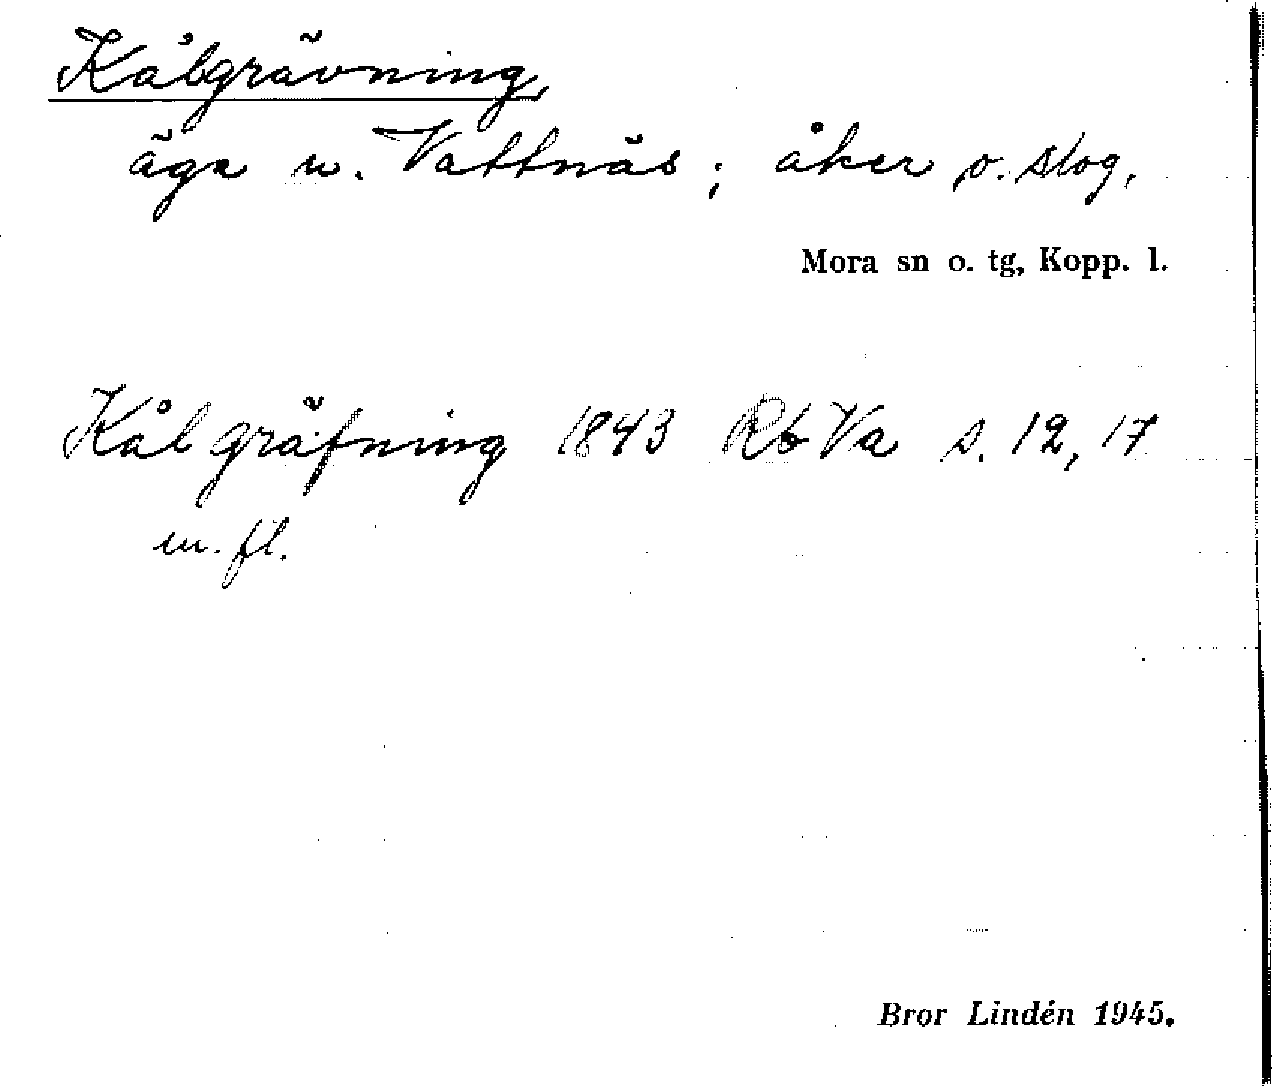 Kålgrävning,
äga n. Vattnäs; åker o. slog,
Mora sn o. tg, Kopp. l.
Kålgräfning 1843 Rb Va s. 12, 17
m. fl.
Bror Lindén 1945.